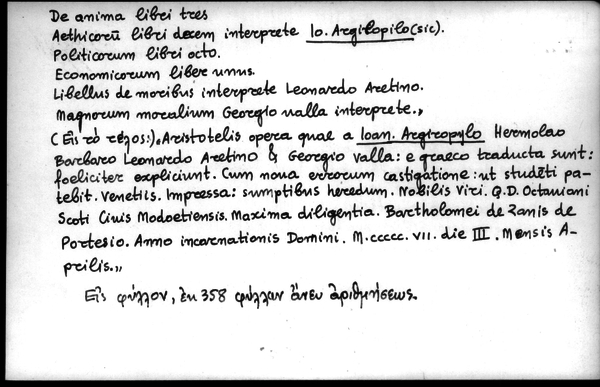 De anima libri tres
Aethicorū libri decem interprete Io. Argilopilo (sic).
Politicorum libri octo.
Economicorum liber unus.
Libellus de moribus interprete Leonardo Aretino.
Magnorum moralium Georgio ualla interprete.,,
(Εἰς τὸ τέλος:). Aristotelis opera quae a Ioan. Argiropylo Hermolao
Barbaro Leonardo Aretino & Georgio Valla: e graeco traducta sunt:
foeliciter expliciunt. Cum noua errorum castigatione: ut studēti pa-
tebit. Venetiis. Impressa: sumptibus heredum. Nobilis Viri. Q.D. Octauiani
Scoti Ciuis Modoetiensis. Maxima diligentia. Bartholomei de Zanis de
Portesio. Anno incarnationis Domini. M.ccccc.vii. die III. Mensis A-
prilis.,,
Εἰς φύλλον, ἐκ 358 φύλλων ἄνευ ἀριθμήσεως.